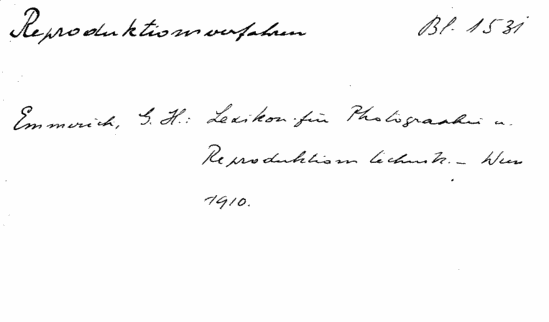 Reproduktionsverfahren Bl. 1531
Emmerich, G. H.: Lexikon für Photographie u.
Reproduktionstechnik. – Wien
1910.